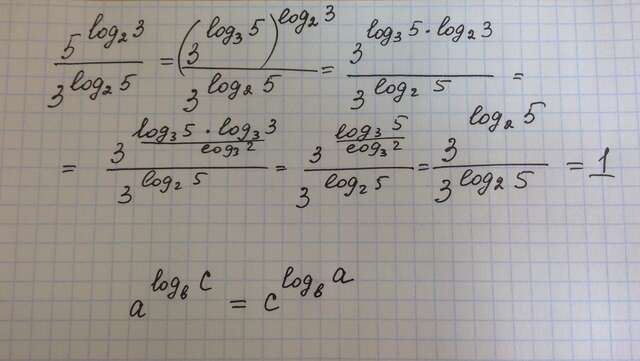 \frac{5^{log_2 3}}{3^{log_2 5}} = \frac{(3^{log_3 5})^{log_2 3}}{3^{log_2 5}} = \frac{3^{log_3 5 · log_2 3}}{3^{log_2 5}} =
= \frac{3^{\frac{log_3 5 · log_3 3}{log_3 2}}}{3^{log_2 5}} = \frac{3^{\frac{log_3 5}{log_3 2}}}{3^{log_2 5}} = \frac{3^{log_2 5}}{3^{log_2 5}} = 1
a^{log_b c} = c^{log_b a}